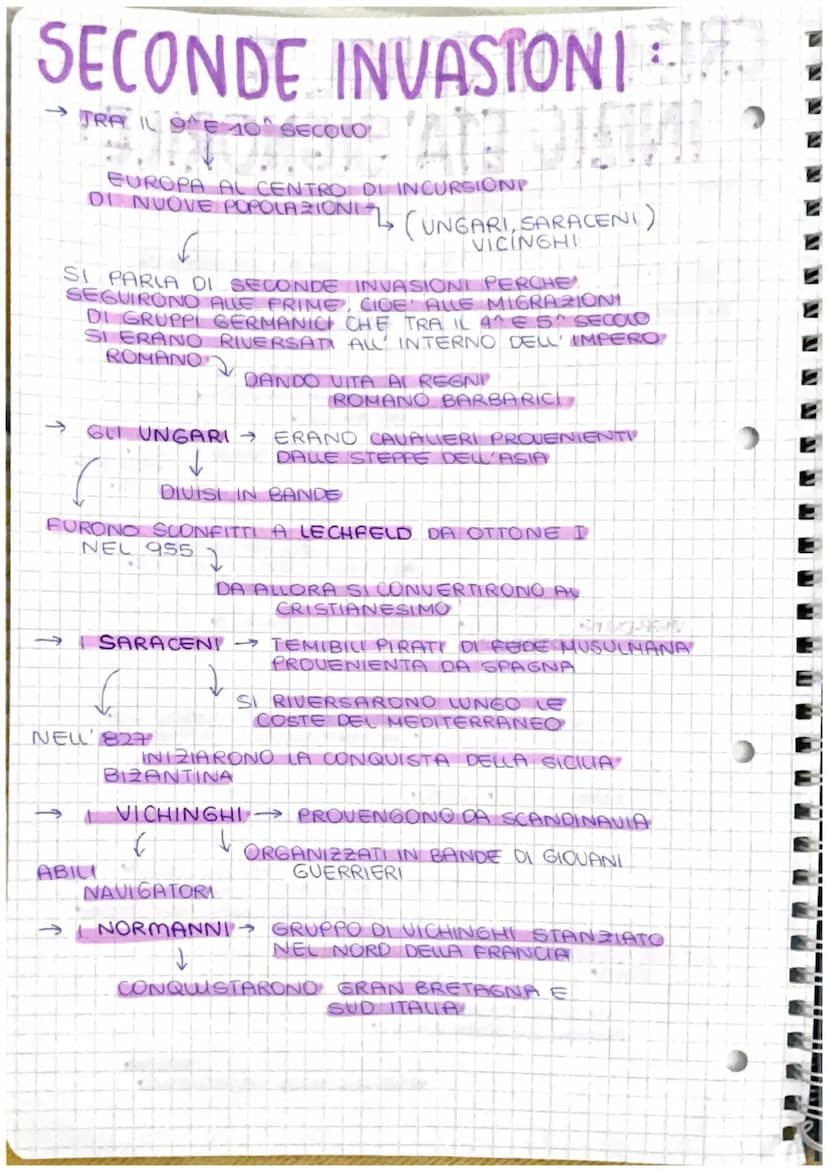 SECONDE INVASIONI:
→ TRA IL 9^ E 10^ SECOLO
EUROPA AL CENTRO DI INCURSIONI
DI NUOVE POPOLAZIONI
(UNGARI, SARACENI)
VICINGHI
SI PARLA DI SECONDE INVASIONI PERCHE'
SEGUIRONO ALLE PRIME, CIOE' ALLE MIGRAZIONI
DI GRUPPI GERMANICI CHE TRA IL 4^ E 5^ SECOLO
SI ERANO RIVERSATI ALL' INTERNO DELL' IMPERO
ROMANO
DANDO VITA AI REGNI
ROMANO BARBARICI
→ GLI UNGARI → ERANO CAVALIERI PROVENIENTI
DALLE STEPPE DELL'ASIA
DIVISI IN BANDE
FURONO SCONFITTI A LECHFELD DA OTTONE I
NEL 955
DA ALLORA SI CONVERTIRONO AL
CRISTIANESIMO
→ I SARACENI → TEMIBILI PIRATI DI FEDE MUSULMANA
PROVENIENTA DA SPAGNA
SI RIVERSARONO LUNGO LE
COSTE DEL MEDITERRANEO
NELL' 827
INIZIARONO LA CONQUISTA DELLA SICILIA
BIZANTINA
→ I VICHINGHI → PROVENGONO DA SCANDINAVIA
ORGANIZZATI IN BANDE DI GIOVANI
GUERRIERI
ABILI
NAVIGATORI
→ I NORMANNI → GRUPPO DI VICHINGHI STANZIATO
NEL NORD DELLA FRANCIA
CONQUISTARONO GRAN BRETAGNA E
SUD ITALIA